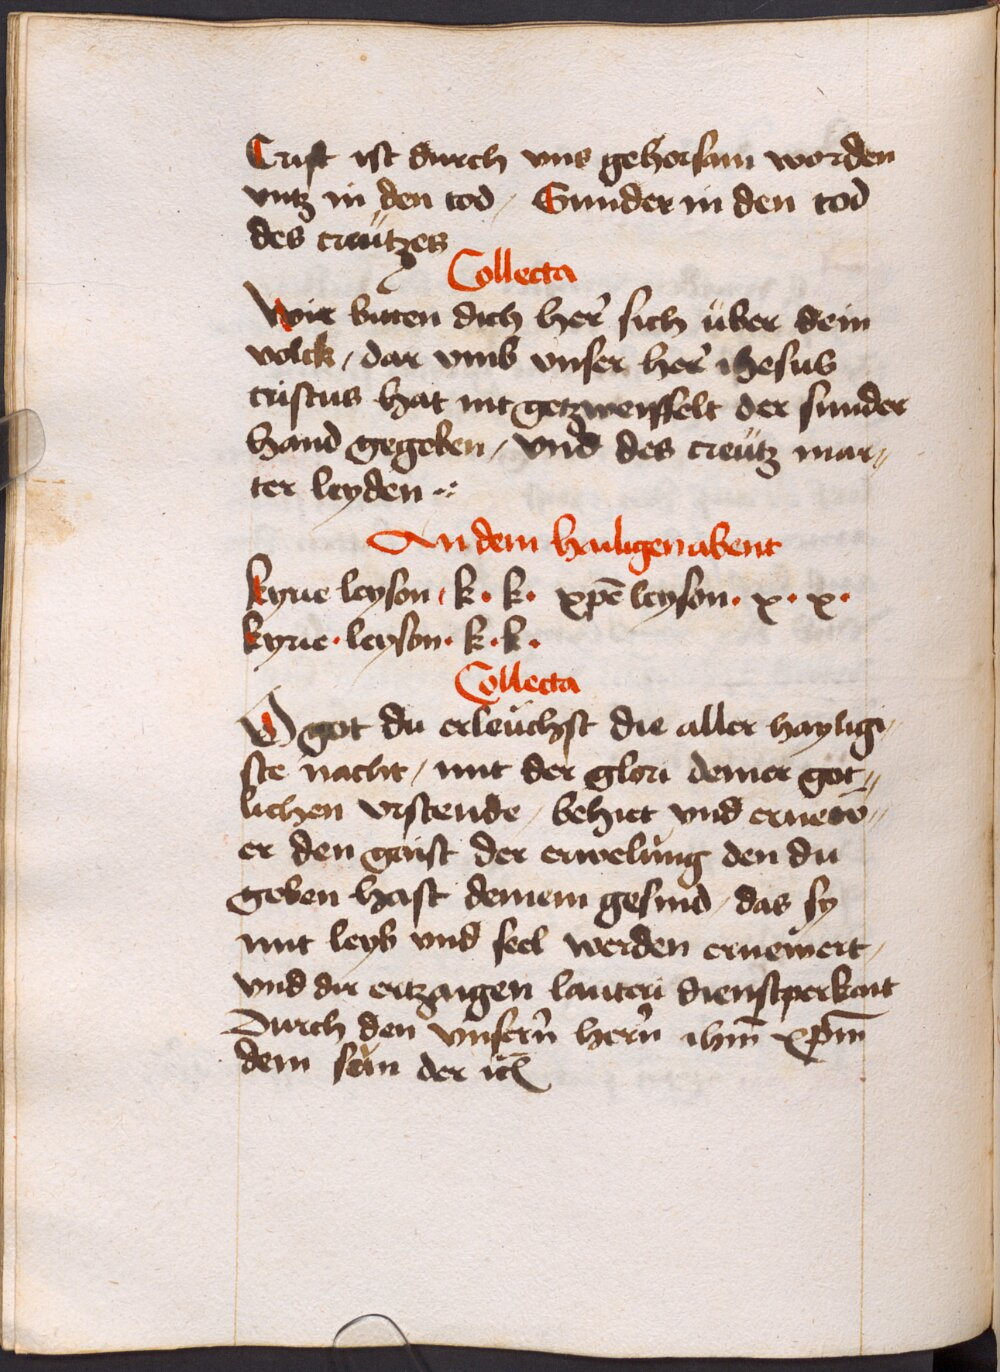 Crist ist durch vns gehorsam worden
vntz in den tod / Sunder in den tod
des creützes
Collecta
Wir biten dich her̃ sich über dein
volck / dar vmb vnser her̃ ihesus
cristus hat nit getzweiffelt der sunder
hand gegeben / vnd des creütz mar//
ter leyden
An dem hailigen abent
kyrie leyson · k · k · xp̄e leyson · x · x ·
kyrie · leyson · k · k ·
Collecta
O got du erleüchst die aller hayligi/
ste nacht / mit der glori deiner got//
lichen vrstende / behiet vnd
er den gaist der erwelung den du
geben hast deinem gesind / das sy
mit leyb vnd seel werden ernewert /
vnd dir ertzaigen lauteri dienstperkait
Durch den vnsern̄ hern̄ ihm̄ xp̄m
dem sün der